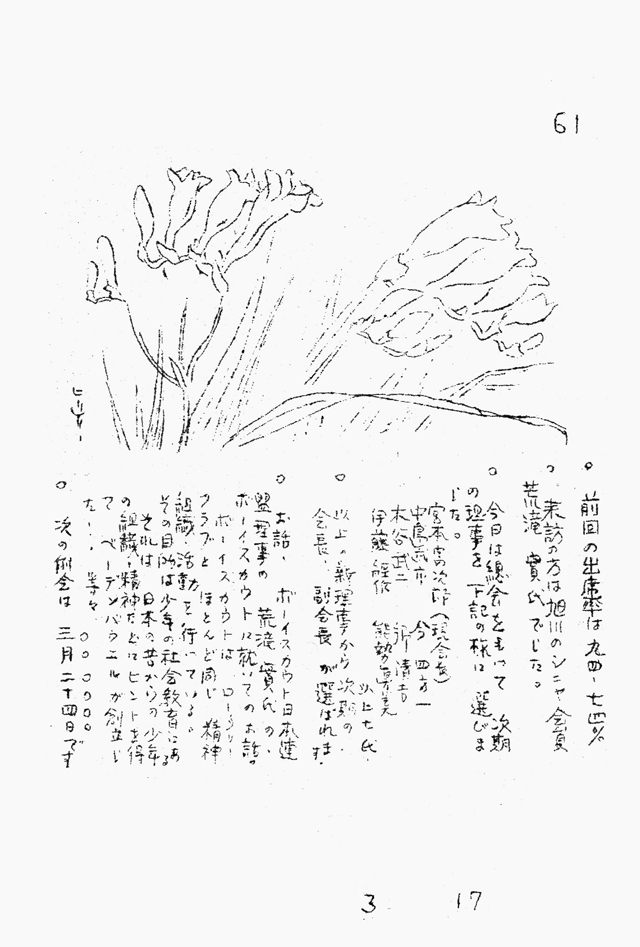 61
。前回の出席率は九四・七四％
。来訪の方は旭川のシニヤ会員
荒滝 實氏でした。
。今日は總会をもって 次期
の理事を下記の様に 選びま
した。
宮本宮次郎（現会長）
中島武市 今 四方一
木谷武二 清吉
伊藤 能勢眞美
以上七氏・
。以上の新理事から次期の・
会長、副会長 が選ばれます・
。お話・ ボーイスカウト日本連
盟理事の 荒滝實氏 の、
ボーイスカウトに就いてのお話。
ボーイスカウトは ロータリー
クラブと ほとんど同じ 精神
組織・活動 を行っている。
その目的は少年の社会教育にある
それは 日本の昔からの少年
の組織・精神などにヒントを得
て ベーデンパウエルが創立し
た・・、等々、 ○○○○○○○
。次の例会は 三月二十四日です
ヒリヤー
3 17